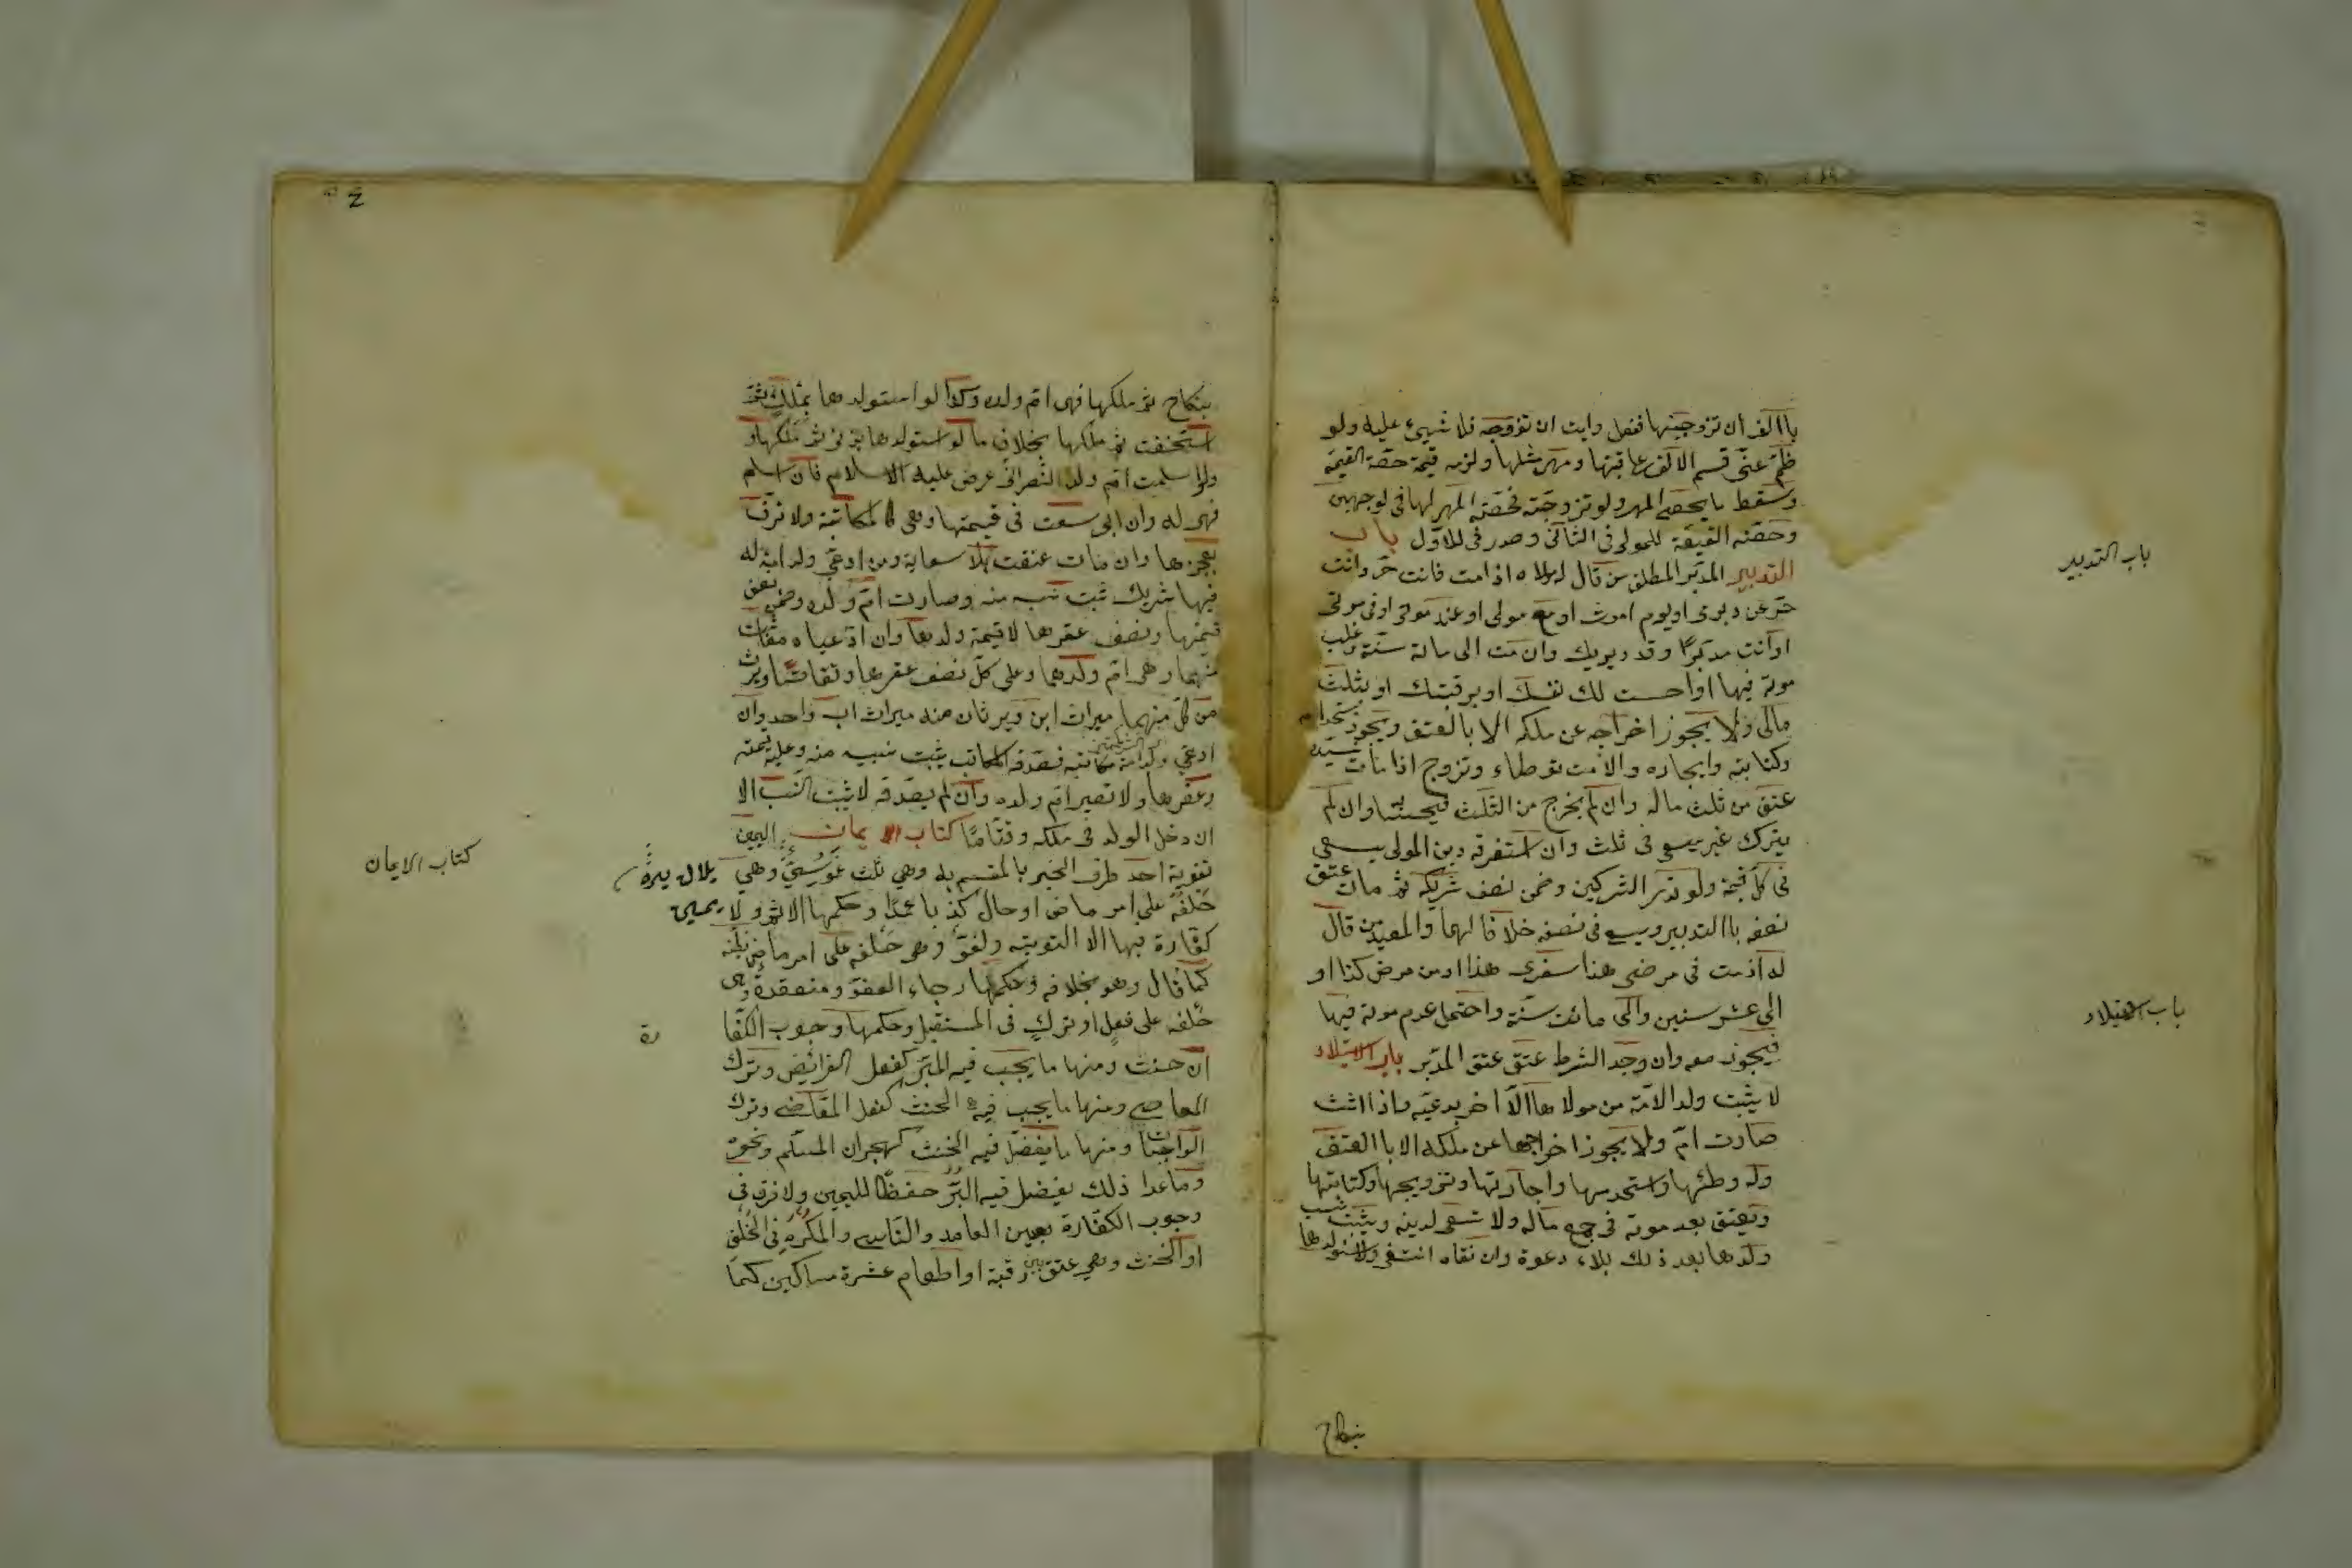 باالف ان تزوجينها ففعل وابت ان تزوجه فلا شيئ عليه ولو
ضم عنى قسم الالف على قيمتها ومهر مثلها ولزمه قيمة حصة القيمة
وسقط ما يخص المهر ولو تزوجته فحصة المهر لها فى لوجهين
وحصة القيمة للمولى فى الثانى وهدر فى للاول باب
التدبير المدبر المطلق من قال له مولاه اذا مت فانت حر وانت
حر عن دبرى او يوم اموت او مع موتى او عند موتى او فى موتى
او انت مدبرًا وقد دبرتك وان مت الى مائة سنة وغلب
موته فيها او اوصيت لك بنفسك او برقبتك او بثلث
مالى ولا يجوز اخراجه عن ملكه الا بالعتق ويجوز استخدامه
وكتابته وايجاره والامة توطاء وتزوج اذا مات سيده
عتق من ثلث ماله وان لم يخرج من الثلث فبحسابه وان لم
يترك غيره سعى فى ثلثيه وان استغرقه دين المولى يسعى
فى كل قيمة ولو دبر الشركين وضمن نصف شريكه ثم مات عتق
نصفه باالتدبير وسعى فى نصفه خلافا لهما والمقيد من قال
له اذ مت فى مرضى هذا او سفرى هذا او من مرض كذا او
الى عشر سنين والى مائة سنة واحتمل عدم موته فيها
فيجوز بيعه وان وجد الشرط عتق عتق المدبر باب الاستيلاد
لا يثبت ولد الامة من مولاها الا اخر يدعيه فاذا اثبت
صارت ام ولا يجوز اخراجها عن ملكه الا باالعتق
وله وطئها واستخدمها واجارتها وتزويجها وكتابتها
وتعتق بعد موته فى جميع ماله ولا تسعى لدينه ويثبت نسب
ولدها بعد ذلك بلاء دعوة وان نفاه انتفى ولو استولدها
بنكاح
باب التدبير
باب استيلاد
بنكاح ثم ملكها فهى ام ولده وكذا لو استولدها بملك ثم
استحقت ثم ملكها بخلاف ما لو استولدها بزنى ثم ملكها و
ولو اسلمت ام ولد النصرانى عرض عليه الاسلام فان اسلم
فهى له وان ابى سعت فى قيمتها وهى كالمكاتبة ولا ترق
بعجزها وان مات عتقت بلا سعاية ومن ادعى ولد امة له
فيها شريك ثبت نسبه منه وصارت ام ولده وضمن نصف
قيمتها ونصف عقرها لا قيمة ولدها وان ادعياه معًا ثبت
منهما وهى ام ولدهما وعلى كل نصف عقرها وتقاصا ويرث
من كل منهما ميراث ابن ويرثان منه ميراث اب واحد وان
ادعى ولد امة مكاتبه فصدقه المكاتب يثبت نسبه منه وعليه قيمته
وعقرها ولا تصير ام ولده وان لم يصدقه لا يثبت النسب الا
ان دخل الولد فى ملكه وقتًا مّا كتاب الايمان اليمين
تقوية احد طرف الخبر بالمقسم به وهي ثلث غموس وهي
حلفه على امر ماض او حال كذبا عمدًا وحكمها الاثم ولا
كفارة فيها الا التوبته ولغو وهو حلفه على امر ماض يظنه
كما قال وهو بخلافه وحكمها رجاء العفو ومنعقدة وهى
حلفه على فعل او ترك فى المستقبل وحكمها وجوب الكفا
رة
ان حنث ومنها ما يجب فيه البر كفعل الفرائض وترك
المعاصى ومنها ما يجب فيه الحنث كفعل المعاصى وترك
الواجبات ومنها ما يفضل فيه الحنث كهجران المسلم ونحوه
وما عدا ذلك يفضل فيه البر حفظًا لليمين ولا فرق فى
وجوب الكفارة بعين العامد والناسى والمكره فى الحلف
او الحنث وهى عتق رقبة او اطعام عشرة مساكين كما
كتاب الايمان